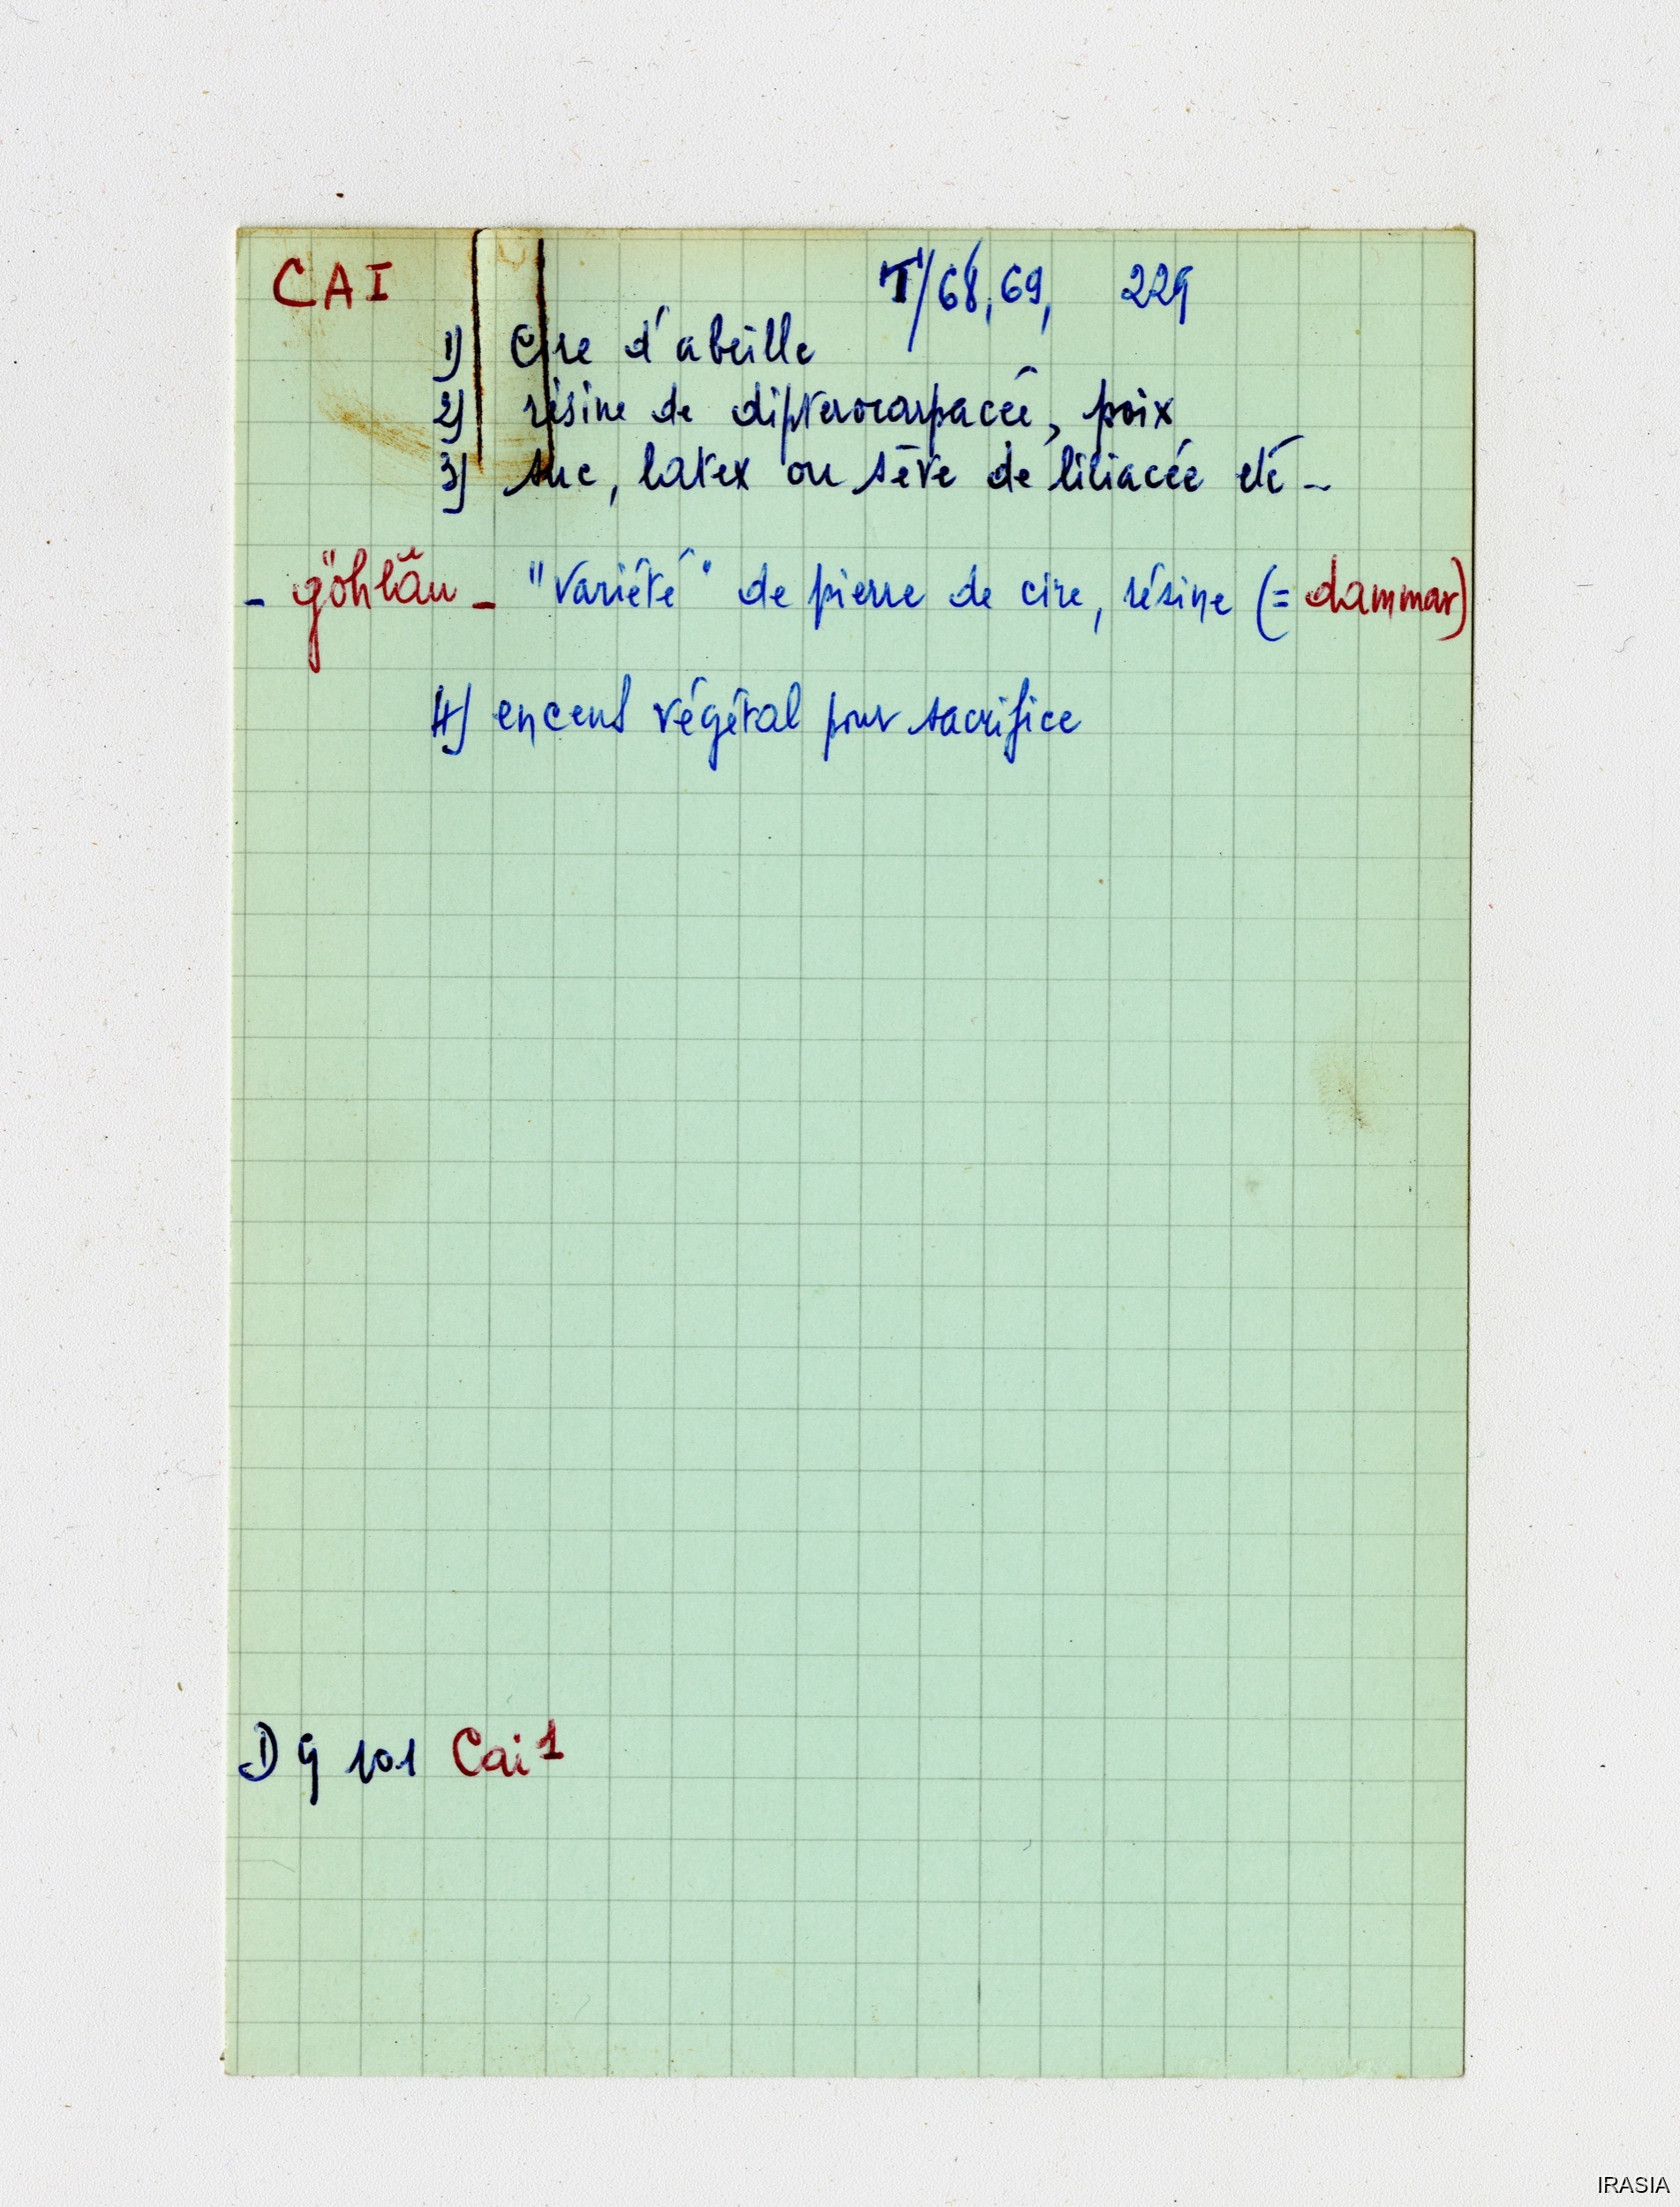 CAI T/68, 69, 229
1) Cire d'abeille
2) résine de diptérocarpacée, poix
3) suc, latex ou sève de liliacée etc -
- göhlău - "variété" de pierre de cire, résine (= dammar)
4) encens végétal pour sacrifice
D 9 101 Cai 1
IRASIA